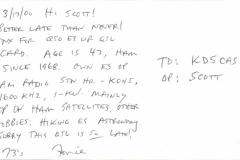 3/17/00 Hi SCOTT!
BETTER LATE THAN NEVER!
TNX FER QSO ES UR QSL
CARD. AGE IS 47, HAM
SINCE 1968. OWN ES OP
AM RADIO STN HR - KOHI,
1600 KHZ, 1-KW. MAINLY
OP ON HAM SATELLITES, OTHER
HOBBIES: HIKING ES ASTRONOMY
SORRY THIS QSL IS SO LATE!
73's
TO: KD5CAS
OP: SCOTT